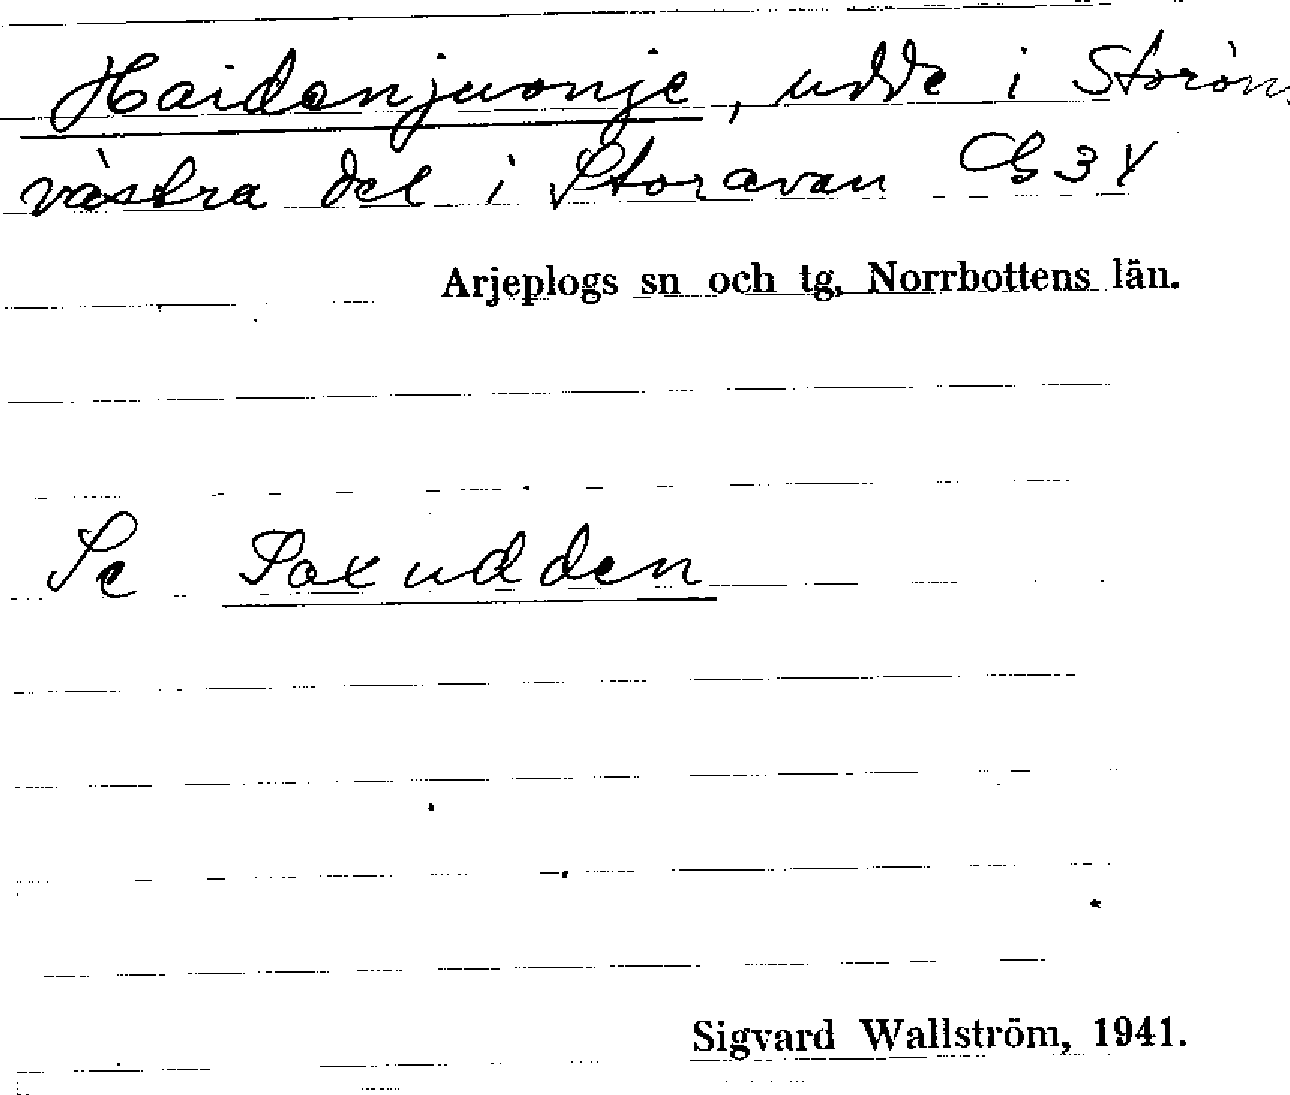 Haidanjuonje, udde i Storöns
västra del i Storavan
Arjeplogs sn och tg, Norrbottens län.
Se Saxudden
Sigvard Wallström, 1941.